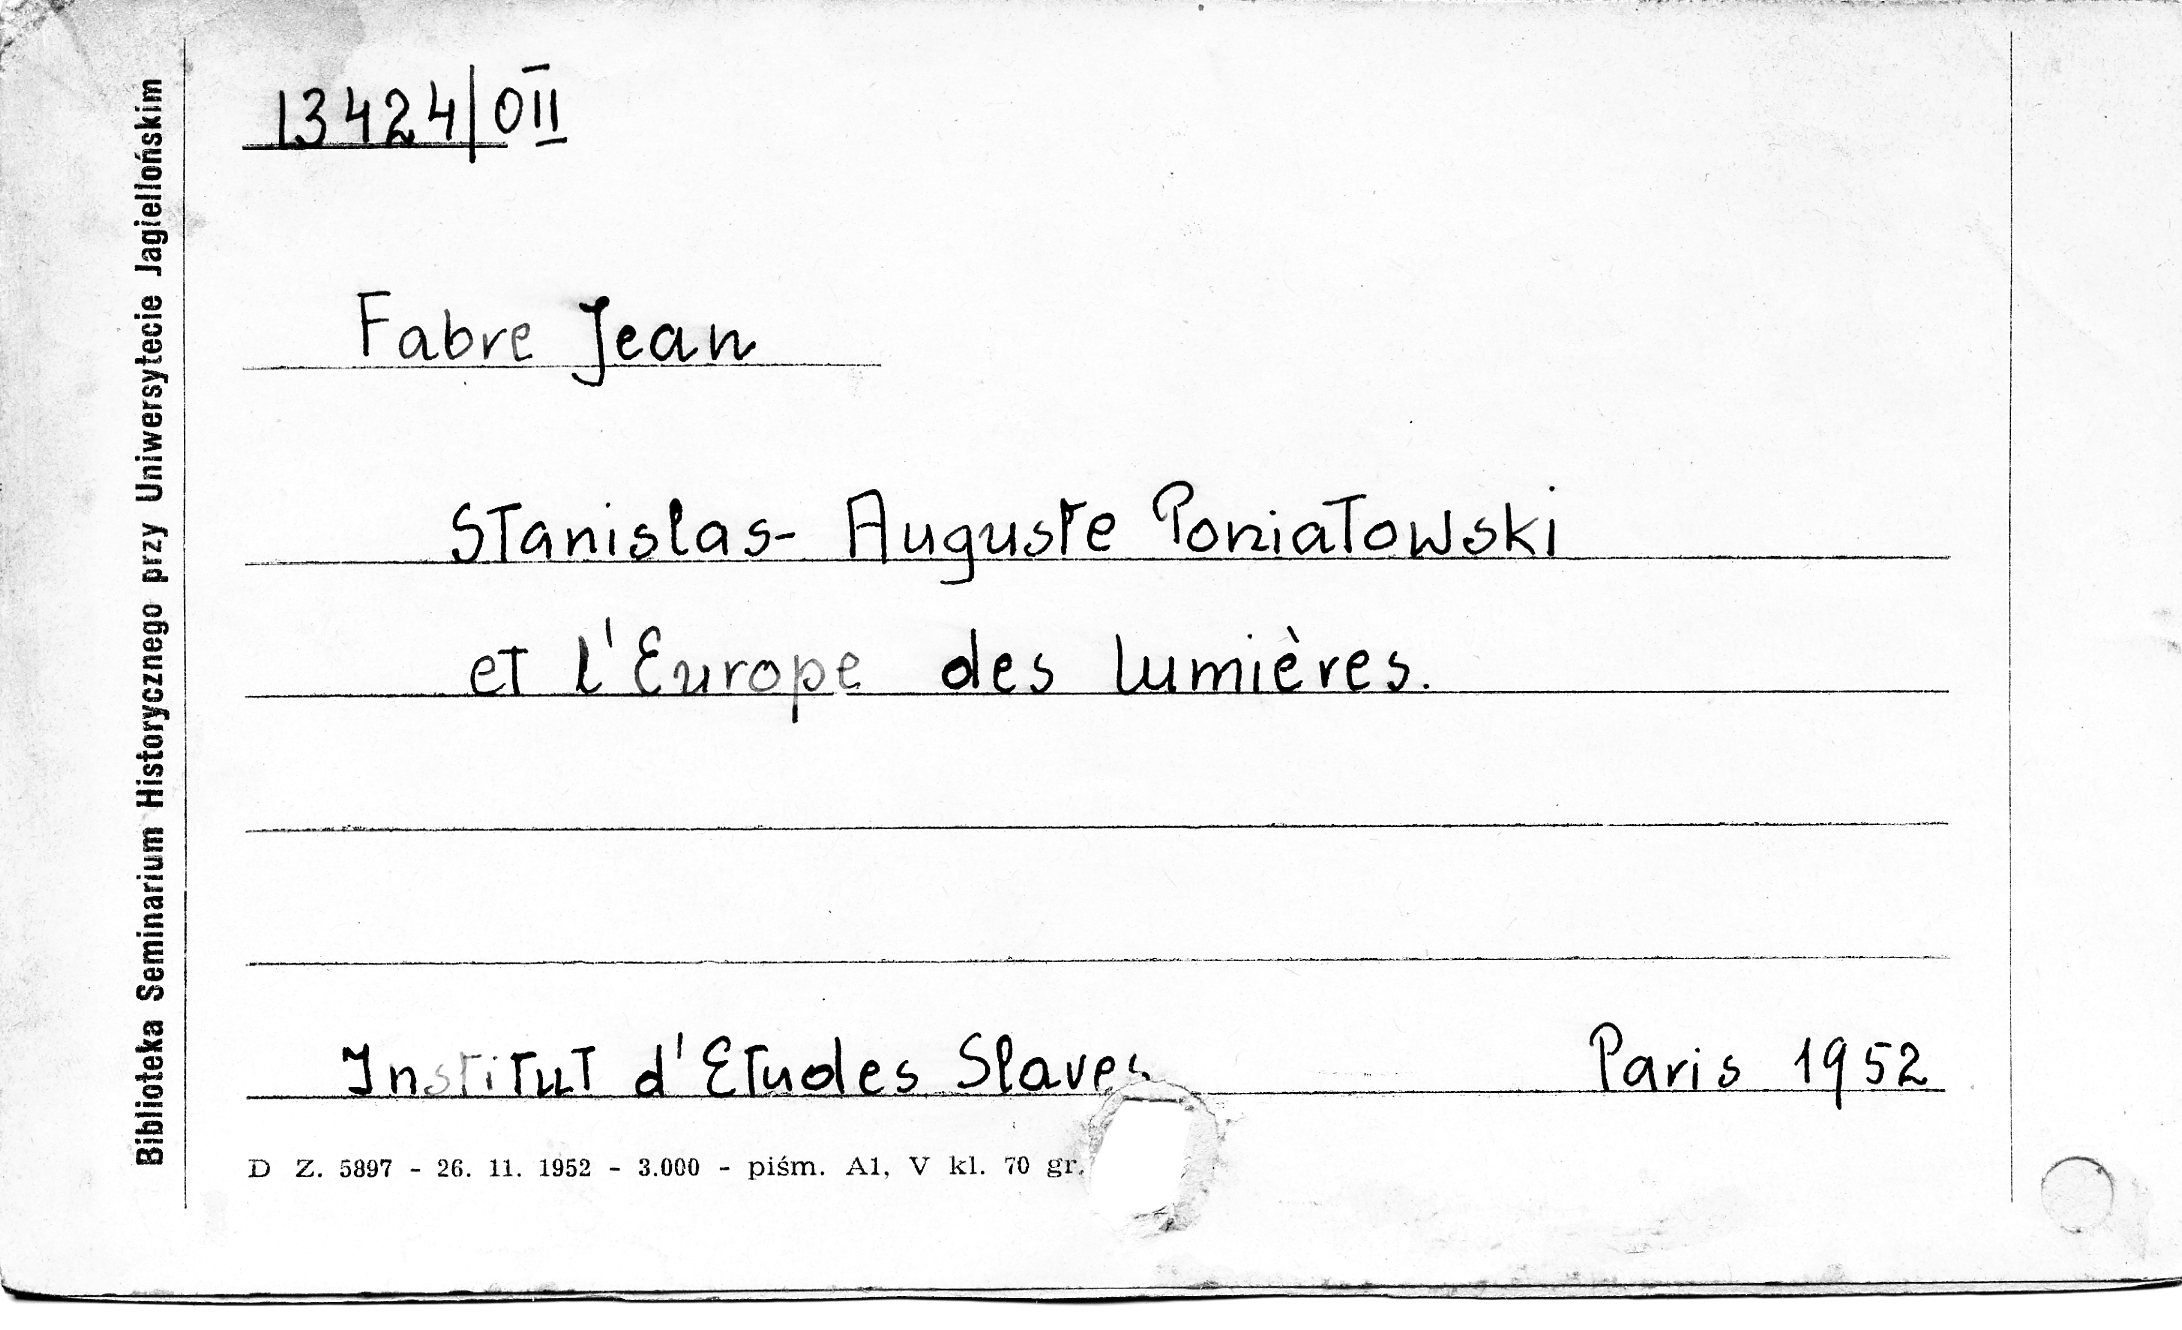 13424/OII
Fabre Jean
Stanislas- Auguste Poniatowski
et l'Europe des lumières.
Institut d'Etudes Slaves Paris 1952
D Z. 5897 - 26. 11. 1952 - 3.000 - piśm. A1, V kl. 70 gr.
Biblioteka Seminarium Historycznego przy Uniwersytecie Jagiellońskim